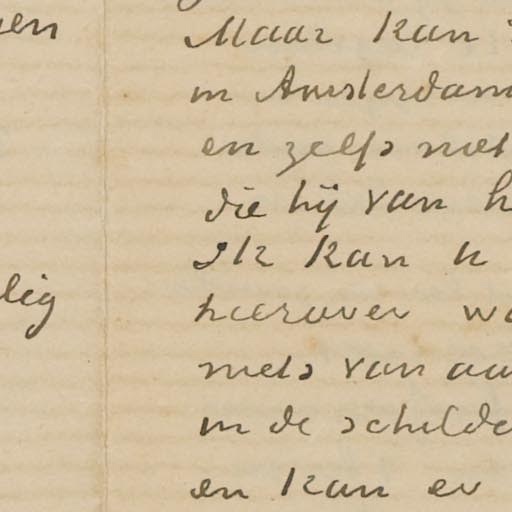 Maar kan
in Amsterdam
en zelfs niet
die hij van h
Ik kan u
hierover wa
niets van aa
in de schilde
en kan er
en
lig